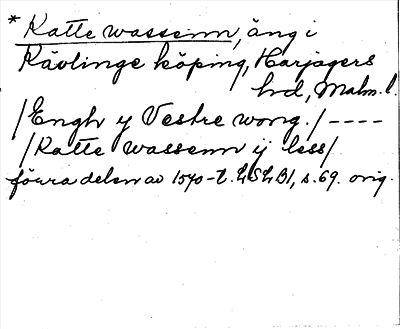 * Katte wassenn, äng i
Kävlinge köping, Harjagers
hd, Malm. l.
/Engh y Vestre wong./ ----
/Katte wassenn ij less/
förra delen av 1570-t. LSLB1, s. 69. orig.